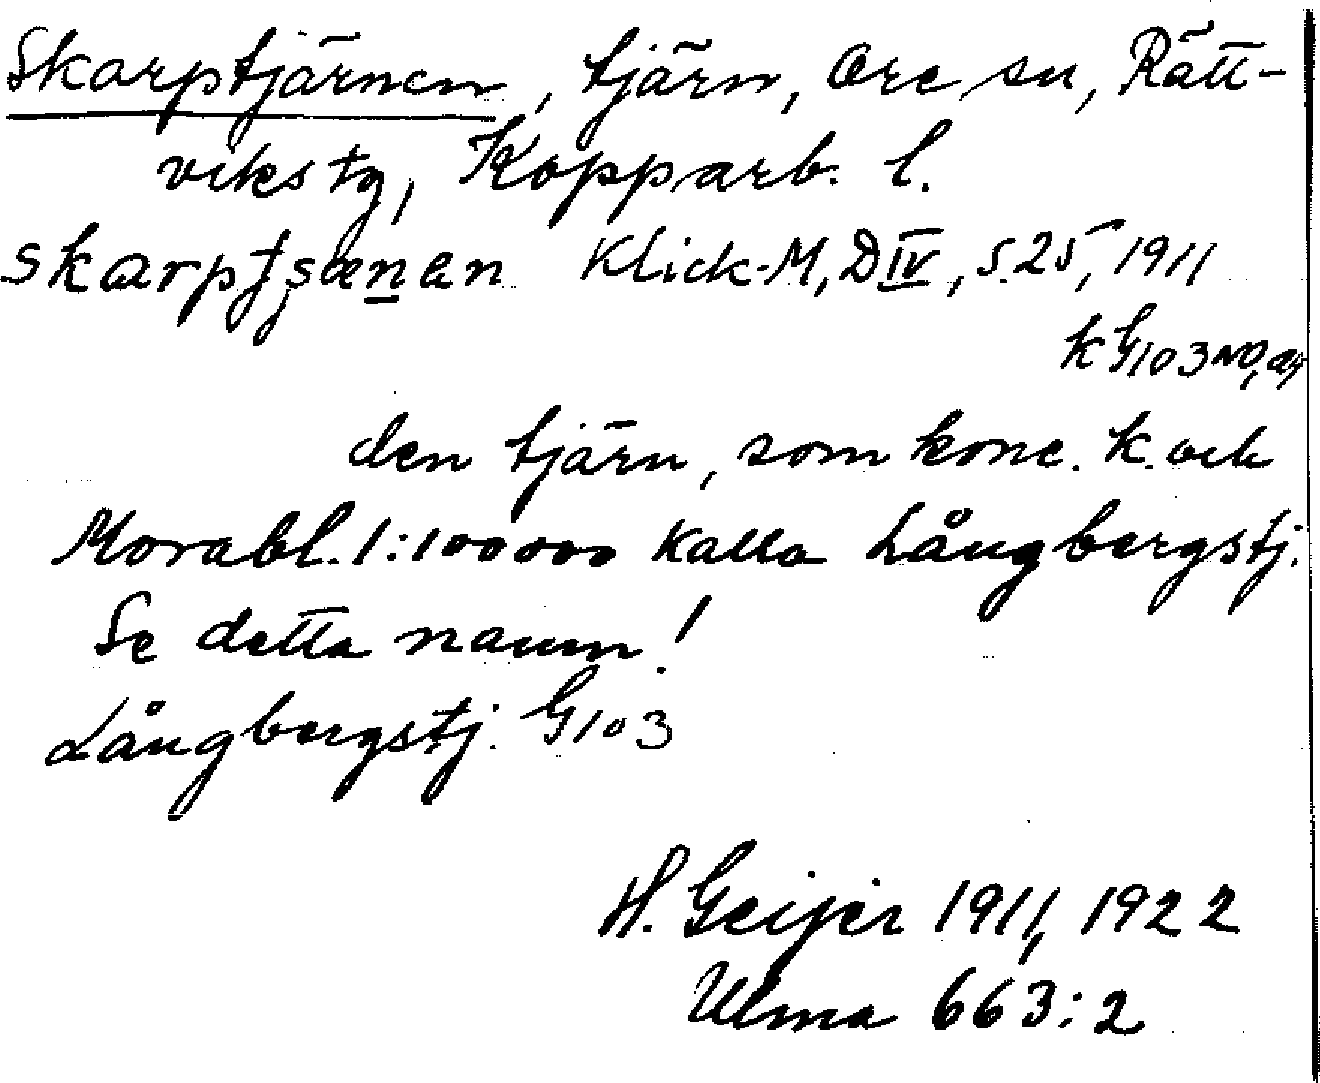 Skarptjärnen, tjärn, Ore sn, Rätt-
viks tg, Kopparb. l.
skarptjsænan Klick-M, D IV, s. 25, 1911
k G103 NO, a,
den tjärn, som konc. k. och
Morabl. 1:100000 kalla Långbergstj.
Se detta namn!
Långbergstj. G103
H. Geijer 1911, 1922
Ulma 663:2